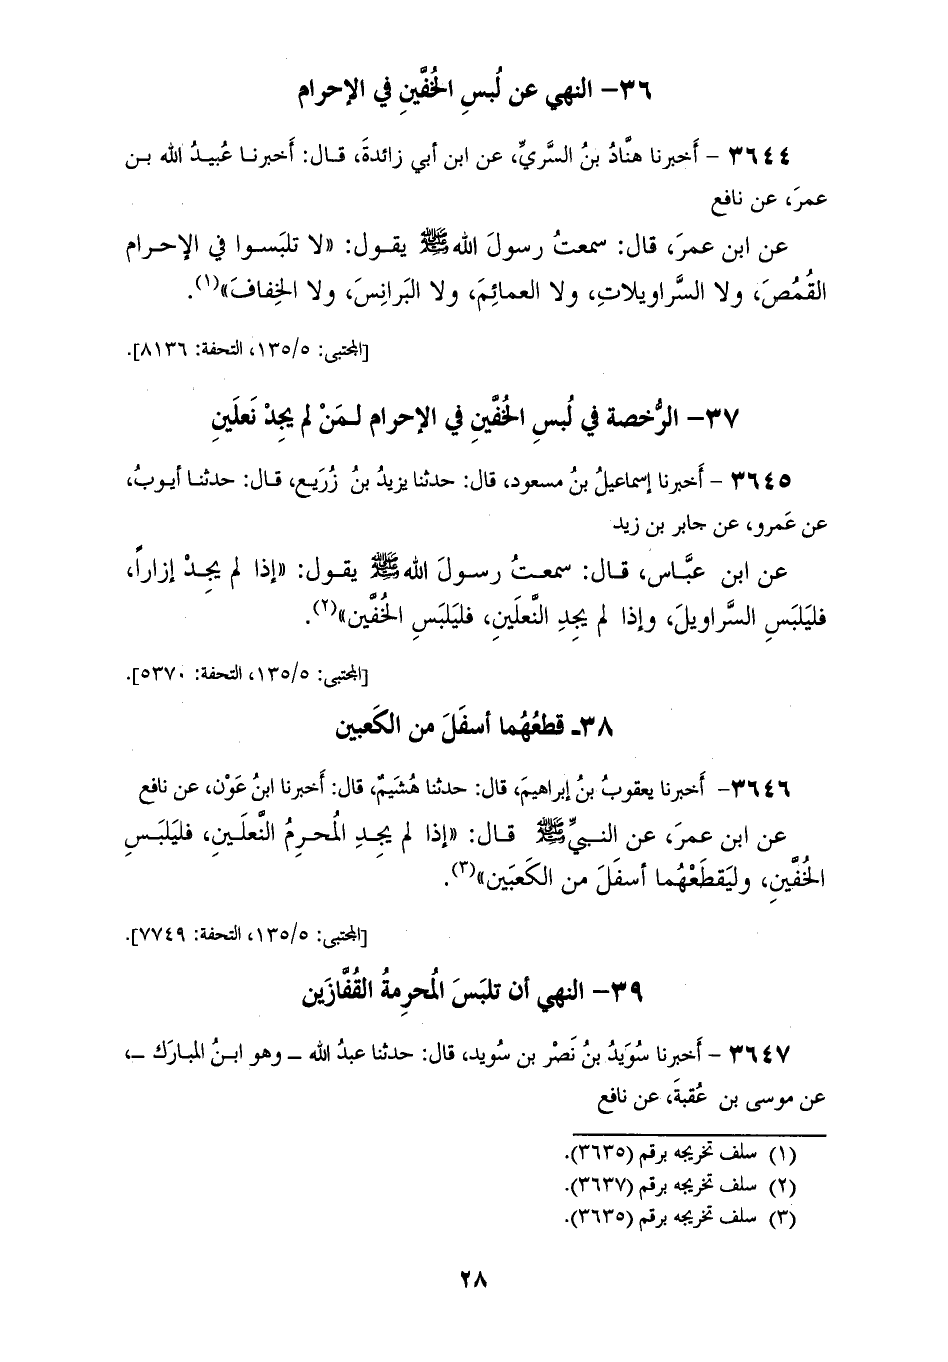 ٣٦- النهي عن لُبسِ الخُفَّينِ في الإحرام
٣٦٤٤ - أَخبرنا هنَّادُ بنُ السَّريِّ، عن ابن أبي زائدةَ، قـال: أَخبرنـا عُبيـدُ الله بـن
عمرَ، عن نافع
عن ابن عمرَ، قال: سمعتُ رسولَ الله ﷺ يقـول: «لا تلبَسـوا في الإحـرام
القُمُصَ، ولا السَّراويلاتِ، ولا العمائِمَ، ولا البَرانِسَ، ولا الخِفافَ»(١).
[المجتبى: ١٣٥/٥، التحفة: ٨١٣٦].
٣٧- الرُّخصة في لُبسِ الخُفَّينِ في الإحرام لـمَنْ لم يجِدْ نَعلَينِ
٣٦٤٥ - أَخبرنا إسماعيلُ بنُ مسعود، قال: حدثنا يزيدُ بنُ زُرَيـع، قـال: حدثنـا أيـوبُ،
عن عَمرو، عن جابر بن زيد
عن ابن عبَّـاس، قـال: سمعـتُ رسـولَ الله ﷺ يقـول: «إذا لم يجِـدْ إزاراً،
فليَلبَسِ السَّراويلَ، وإذا لم يجِدِ النَّعلَينِ، فليَلبَسِ الخُفَّين»(٢).
[المجتبى: ١٣٥/٥، التحفة: ٥٣٧٠].
٣٨ـ قطعُهُما أسفَلَ من الكَعبين
٣٦٤٦- أَخبرنا يعقوبُ بنُ إبراهيمَ، قال: حدثنا هُشَيمٌ، قال: أَخبرنا ابنُ عَوْن، عن نافع
عن ابن عمرَ، عن النـبيِّ ﷺ قـال: «إذا لم يجِـدِ المُحـرِمُ النَّعلَـينِ، فليَلبَـسِ
الخُفَّينِ، وليَقطَعْهُما أسفَلَ من الكَعبَين»(٣).
[المجتبى: ١٣٥/٥، التحفة: ٧٧٤٩].
٣٩- النهي أن تلبَسَ المُحرِمةُ القُفَّازَين
٣٦٤٧ - أَخبرنا سُوَيدُ بنُ نَصْر بن سُويد، قال: حدثنا عبدُ الله ـ وهو ابـنُ المبـارَك ـ،
عن موسى بن عُقبةَ، عن نافع
(١) سلف تخريجه برقم (٣٦٣٥).
(٢) سلف تخريجه برقم (٣٦٣٧).
(٣) سلف تخريجه برقم (٣٦٣٥).
٢٨